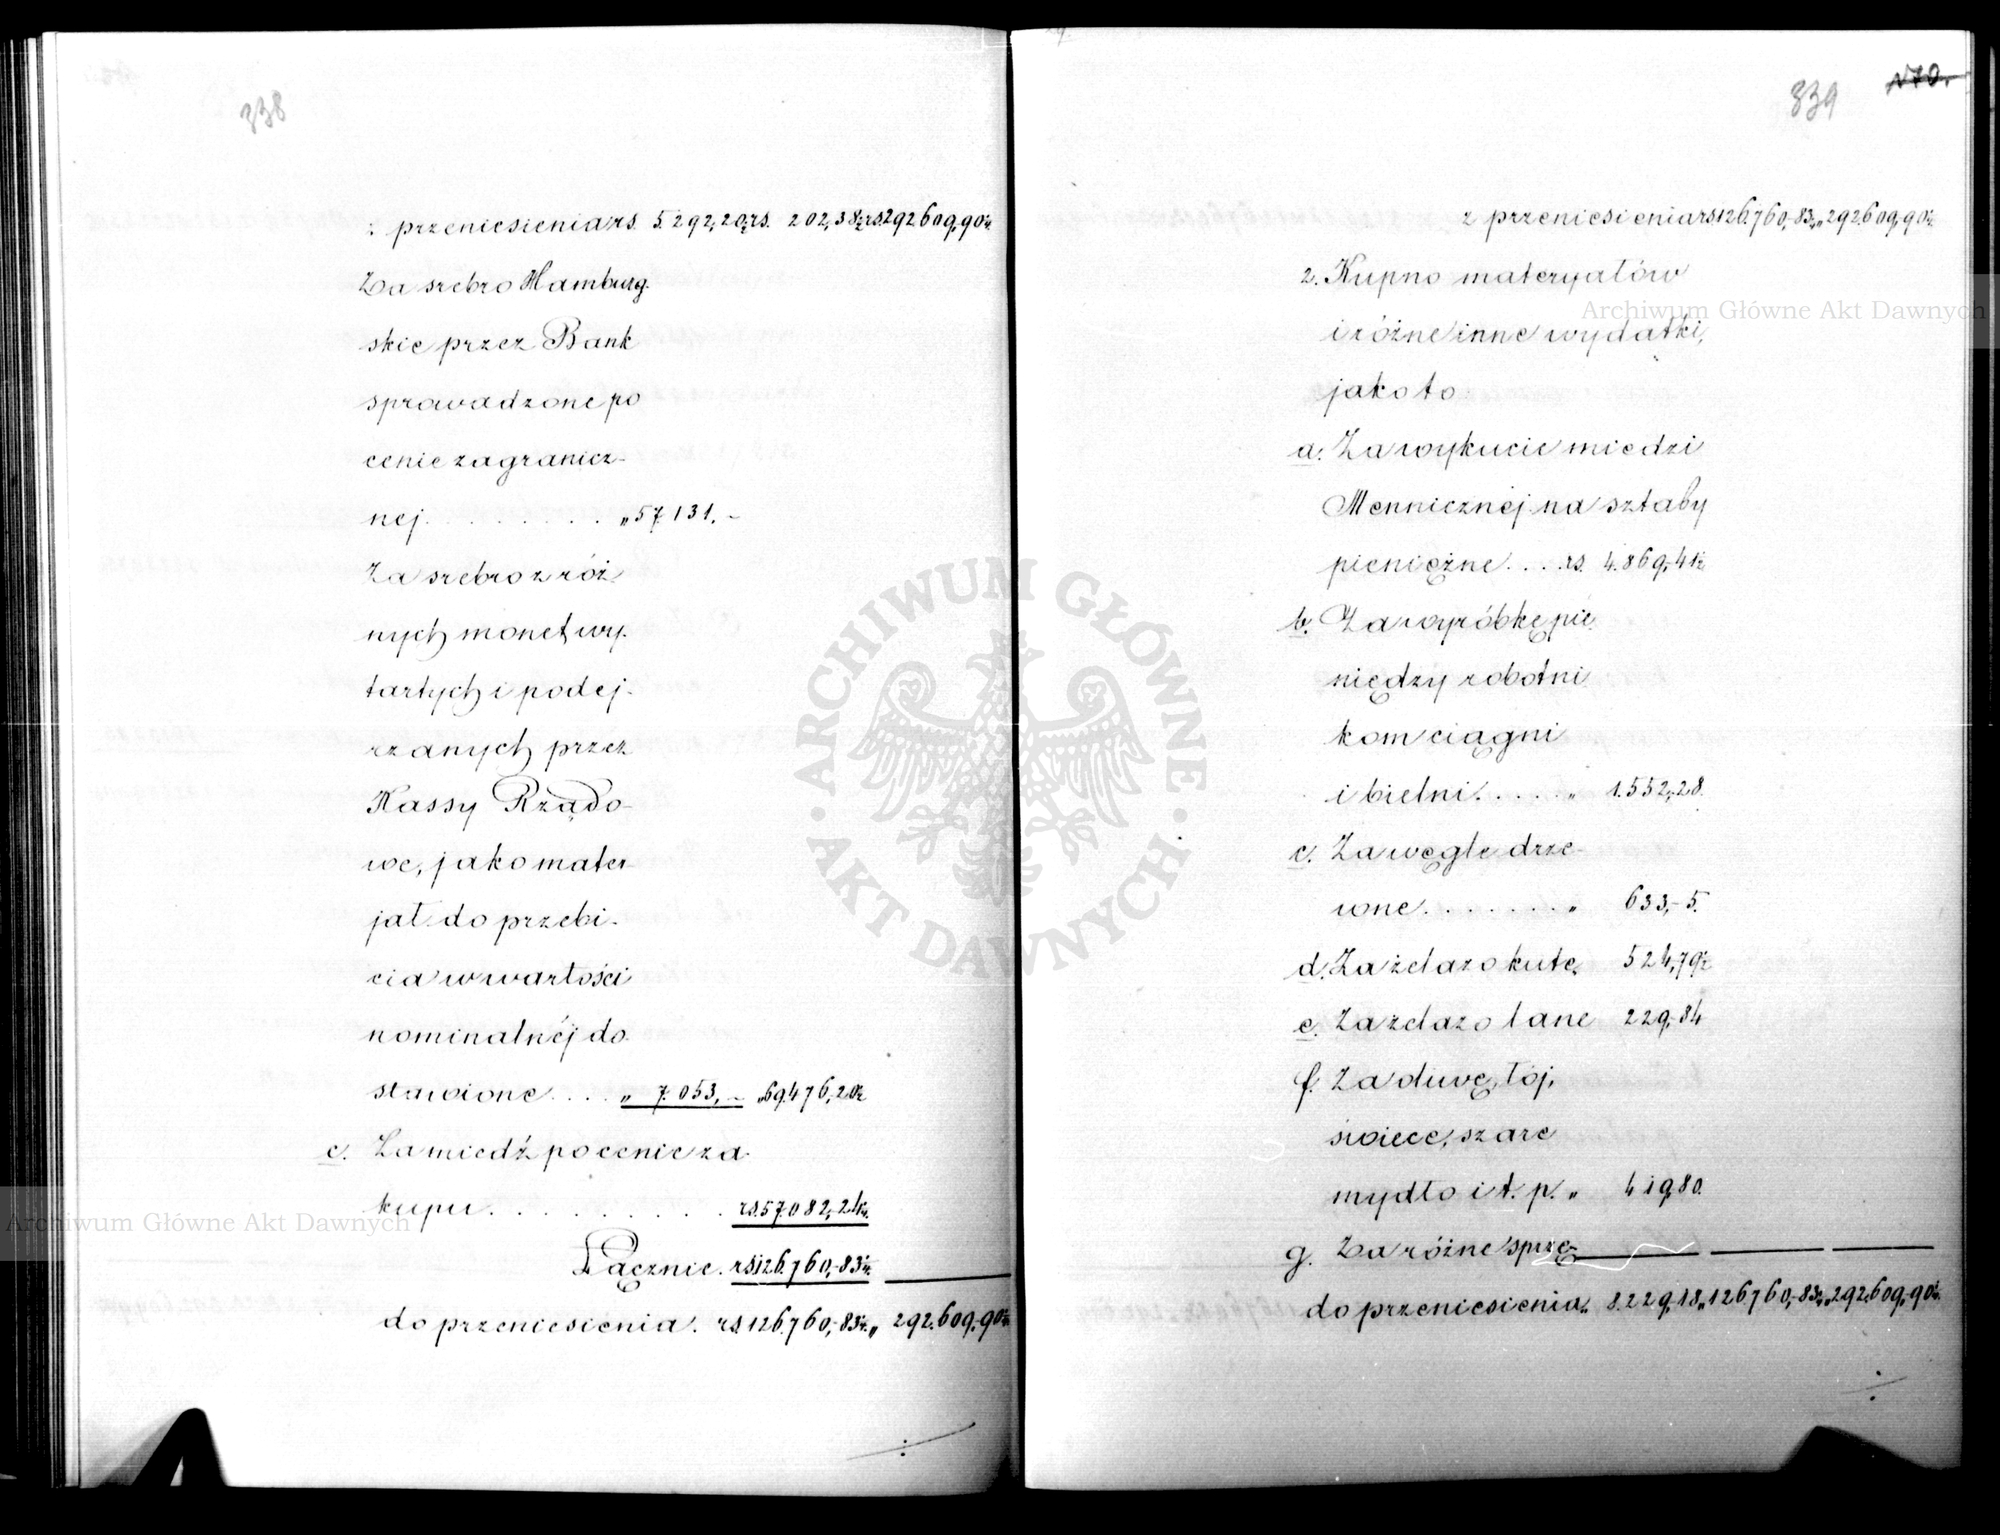 338
z przeniesienia rs. 5.292,20½ rs. 202,38½ rs 292.609,90½
Za srebro Hamburg-
skie przez Bank
sprowadzone po
cenie zagranicz-
nej . . . . . . . . . „ 57.131. –
Za srebro z róż-
nych monet wy-
tartych i podej-
rzanych przez
Kassy Rządo-
we, jako mater-
jał do przebi-
cia w wartości
nominalnéj do-
stawione . . . . „ 7.053, – „69.476,20½
c. Za miedź po cenie za-
kupu . . . . . . . . . . rs. 57.082,24½
Łącznie. rs 126.760,83½
do przeniesienia. rs. 126.760,83½ „ 292.609,90½
339
z przeniesienia rs 126.760,83½ „ 292.609,90½
2. Kupno materyałów
i różne inne wydatki,
jako to
a. Za wykucie miedzi
Mennicznéj na sztaby
pieniężne . . . rs. 4.869,41½
b. Za wyróbkę pie-
niędzy robotni
kom ciągni
i bielni . . . . . „ 1.552,28.
c. Za węgle drze-
wne . . . . . . . „ 633,5.
d. Za żelazo kute „ 524,79½
e. Za żelazo lane 229,84
f. Za oliwę, łój,
świece, szare
mydło i t. p. „ 419,80.
g. Za różne sprzę-
do przeniesienia „ 8.229,18 „ 126.760,83½ „ 292.609,90½
Archiwum Główne Akt Dawnych
Archiwum Główne Akt Dawnych
ARCHIWUM GŁÓWNE AKT DAWNYCH